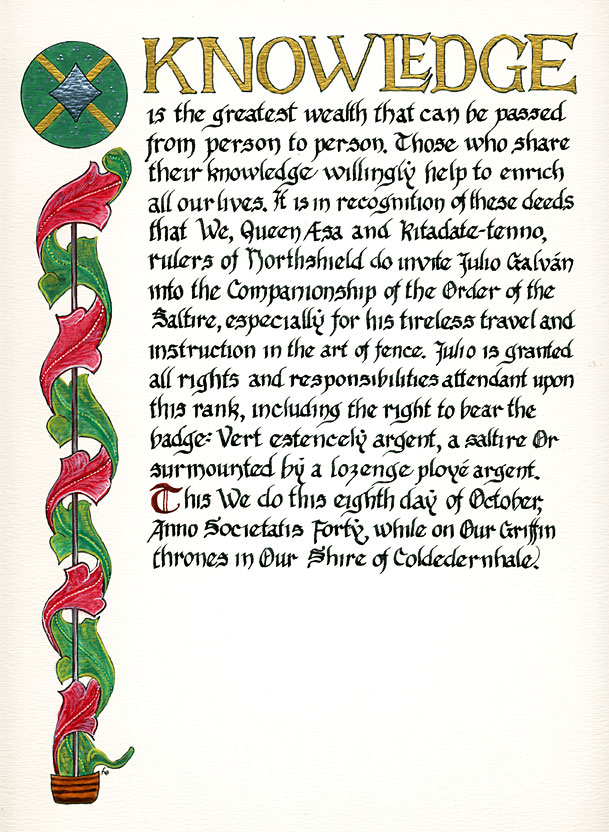 KNOWLEDGE
is the greatest wealth that can be passed
from person to person. Those who share
their knowledge willingly help to enrich
all our lives. It is in recognition of these deeds
that We, Queen Æsa and Kitadate-tenno,
rulers of Northshield do invite Julio Galván
into the Companionship of the Order of the
Saltire, especially for his tireless travel and
instruction in the art of fence. Julio is granted
all rights and responsibilities attendant upon
this rank, including the right to bear the
badge: Vert estencely argent, a saltire Or
surmounted by a lozenge ployé argent.
This We do this eighth day of October,
Anno Societatis Forty, while on Our Griffin
thrones in Our Shire of Coldedernhale.